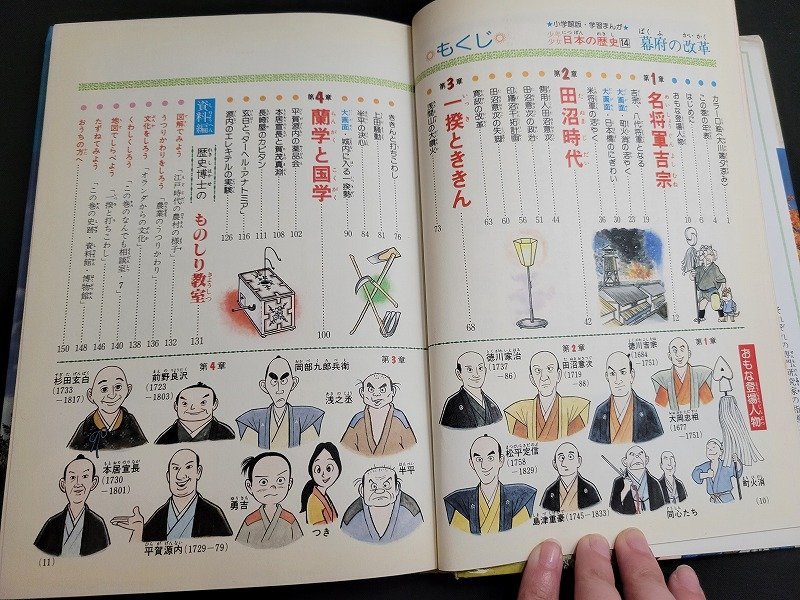 ★小学館版・学習まんが★
少年少女日本の歴史⑭ 幕府の改革
もくじ
カラー口絵・大川端夕涼み 1
この巻の年表 4
おもな登場人物 10
はじめに
第1章 名将軍吉宗 12
吉宗、八代将軍となる 19
大画面・町火消の志くみ
大画面・日本橋のにぎわい
米将軍の志くみ
第2章 田沼時代 42
側用人田沼意次 44
田沼意次の政治 51
印旛沼干拓計画 56
田沼意次の失脚 60
寛政の改革 63
第3章 一揆とききん 68
浅間山の大噴火 73
ききんと打ちこわし 76
上田騒動 81
半平の決心 84
大画面・城内に入る一揆勢 90
第4章 蘭学と国学 100
平賀源内の薬品会 102
本居宣長と賀茂真淵 108
長崎屋のカピタン 111
玄白と『ターヘル・アナトミア』 116
源内のエレキテルの実験 126
資料編 歴史博士のものしり教室 131
図解でみよう 「江戸時代の農村の様子」 132
うつりかわりをしろう 「農業のうつりかわり」 136
文化をしろう 「オランダからの文化」 138
くわしくしろう 「この巻のなんでも相談室・7」 140
地図でしらべよう 「一揆と打ちこわし」 144
たずねてみよう 「この巻の史跡・資料館・博物館」 146
おうちの方へ 148
150
おもな登場人物
第1章
徳川吉宗
(1684
-1751)
大岡忠相
(1677
-1751)
町火消
同心たち
第2章
徳川家治
(1737
-86)
田沼意次
(1719
-88)
松平定信
(1758
-1829)
島津重豪(1745-1833)
(10)
第3章
岡部九郎兵衛
浅之丞
半平
つき
勇吉
第4章
前野良沢
(1723
-1803)
杉田玄白
(1733
-1817)
本居宣長
(1730
-1801)
平賀源内(1729-79)
(11)